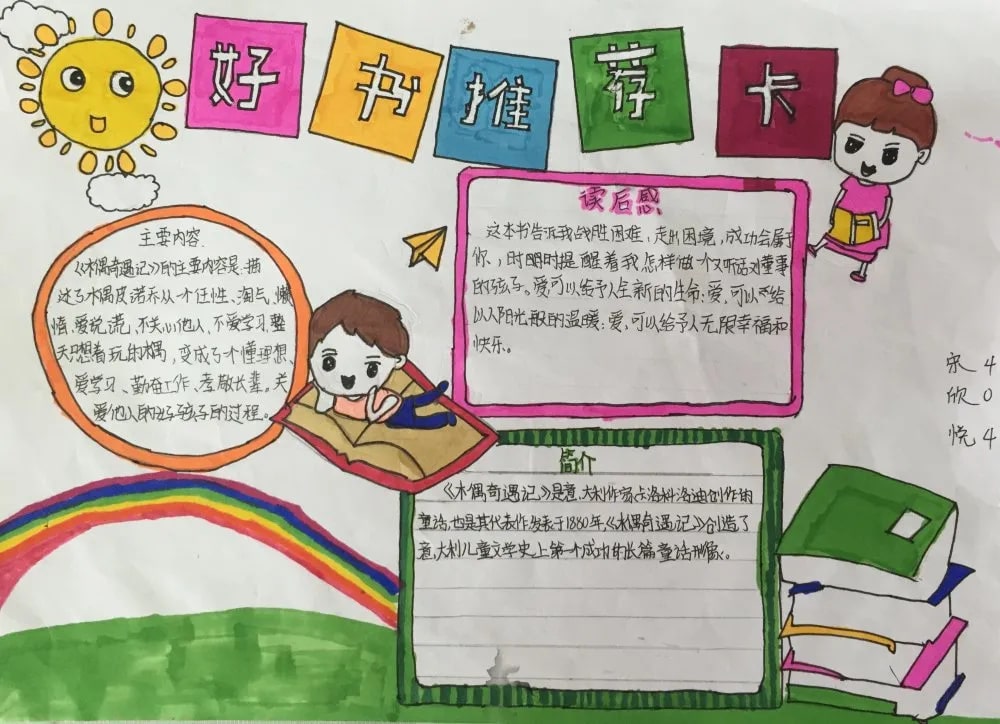 好书推荐卡
主要内容
《木偶奇遇记》的主要内容是:描
述了木偶皮诺乔从一个任性、淘气、懒
惰、爱说谎、不关心他人、不爱学习、整
天只想着玩的木偶,变成了个懂理想、
爱学习、勤奋工作、孝敬长辈,关
爱他人的好孩子的过程。
读后感
这本书告诉我战胜困难,走出困境,成功会属于
你、,时时提醒着我怎样做一个又听话又懂事
的孩子。爱可以给予人全新的生命;爱,可以给
以人阳光般的温暖;爱,可以给予人无限幸福和
快乐。
简介
《木偶奇遇记》是意大利作家卡洛科洛迪创作的
童话,也是其代表作,发表于1880年,《木偶奇遇记》创造了
意大利儿童文学史上第一个成功的长篇童话形象。
宋 4
欣 0
悦 4